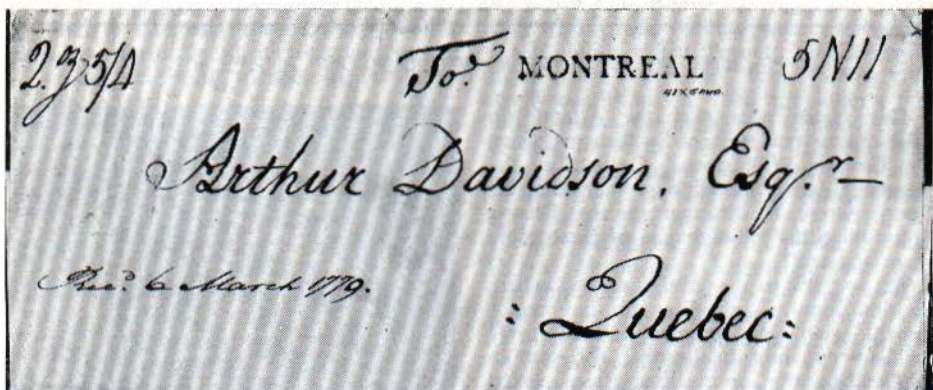 2.3 5/4 To. MONTREAL 5N11
Arthur Davidson, Esqr. —
Recd. 6 March 1779.
: Quebec :